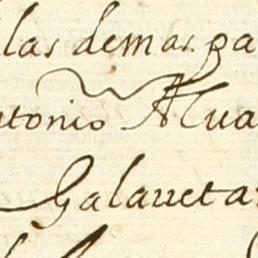 las demas pa
ntonio Alua
Galarreta